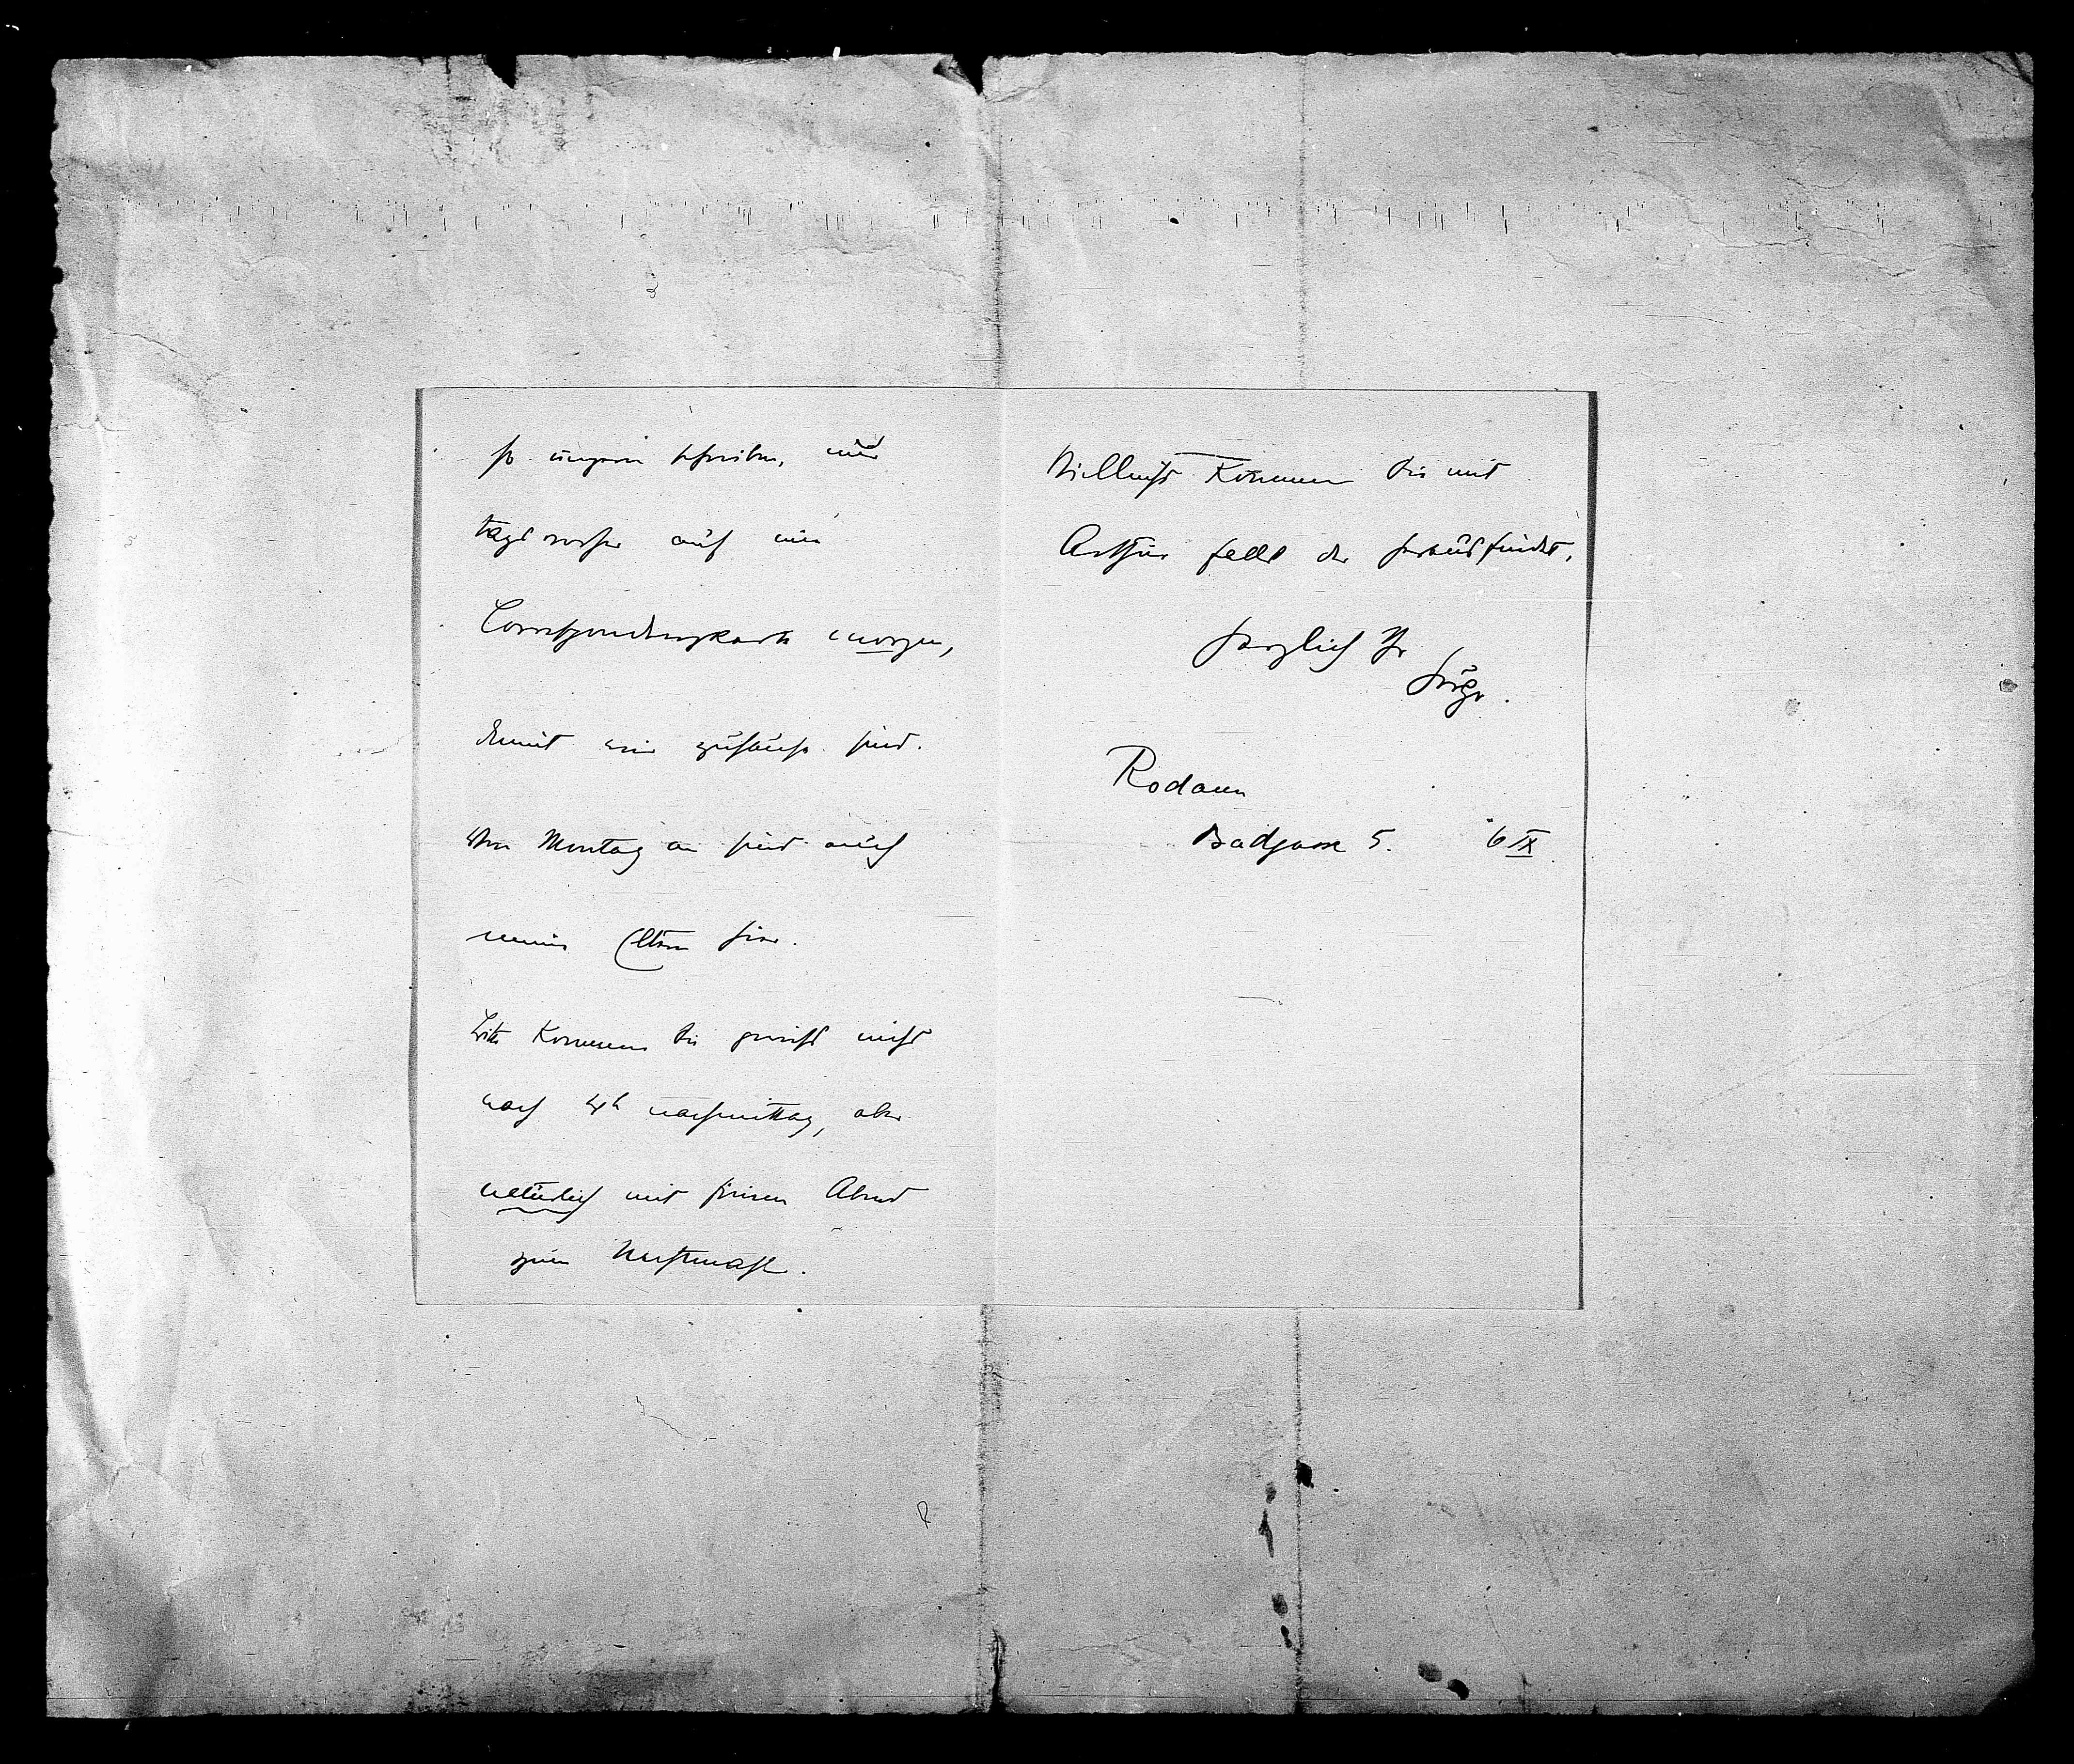 so ungern schreiben, nur
tags vorher auf eine
Correspondenzkarte morgen,
damit wir zuhause sind.
Von Montag an sind auch
meine Eltern hier.
Bitte kommen Sie gewiss nicht
nach 4h nachmittag, aber
natürlich mit feinem Abend
zum Nachtmahl.
Vielleicht kommen Sie mit
Arthur falls der herausfindet.
Herzlich Ihr
Hugo.
Rodaun
Badgasse 5. 6 IX